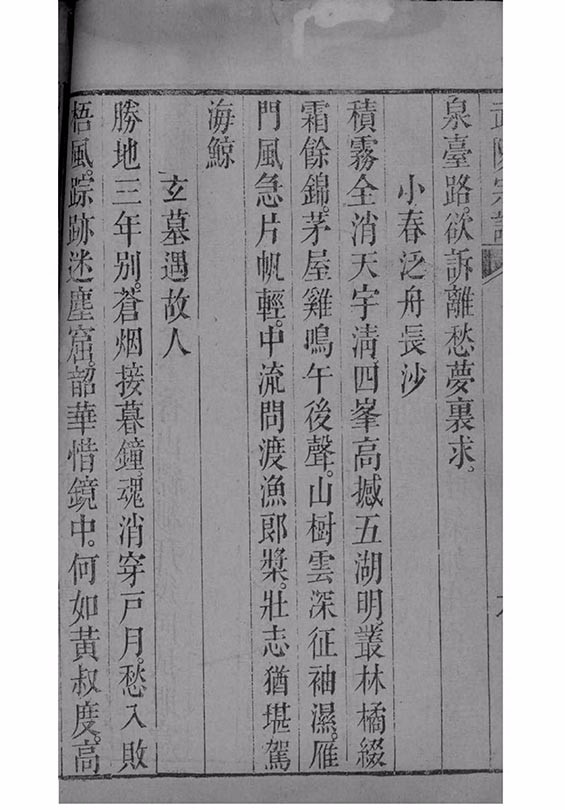 泉臺路。欲訴離愁夢裏求。
小春泛舟長沙
積霧全消天宇清四峯高撼五湖明。叢林橘綴
霜餘錦。茅屋雞鳴午後聲。山樹雲深征袖濕。雁
門風急片帆輕。中流問渡漁郎槳。壯志猶堪駕
海鯨
玄墓遇故人
勝地三年別。蒼烟接暮鐘。魂消穿戸月。愁入敗
梧風。踪跡迷塵窟。韶華惜鏡中。何如黃叔度。高